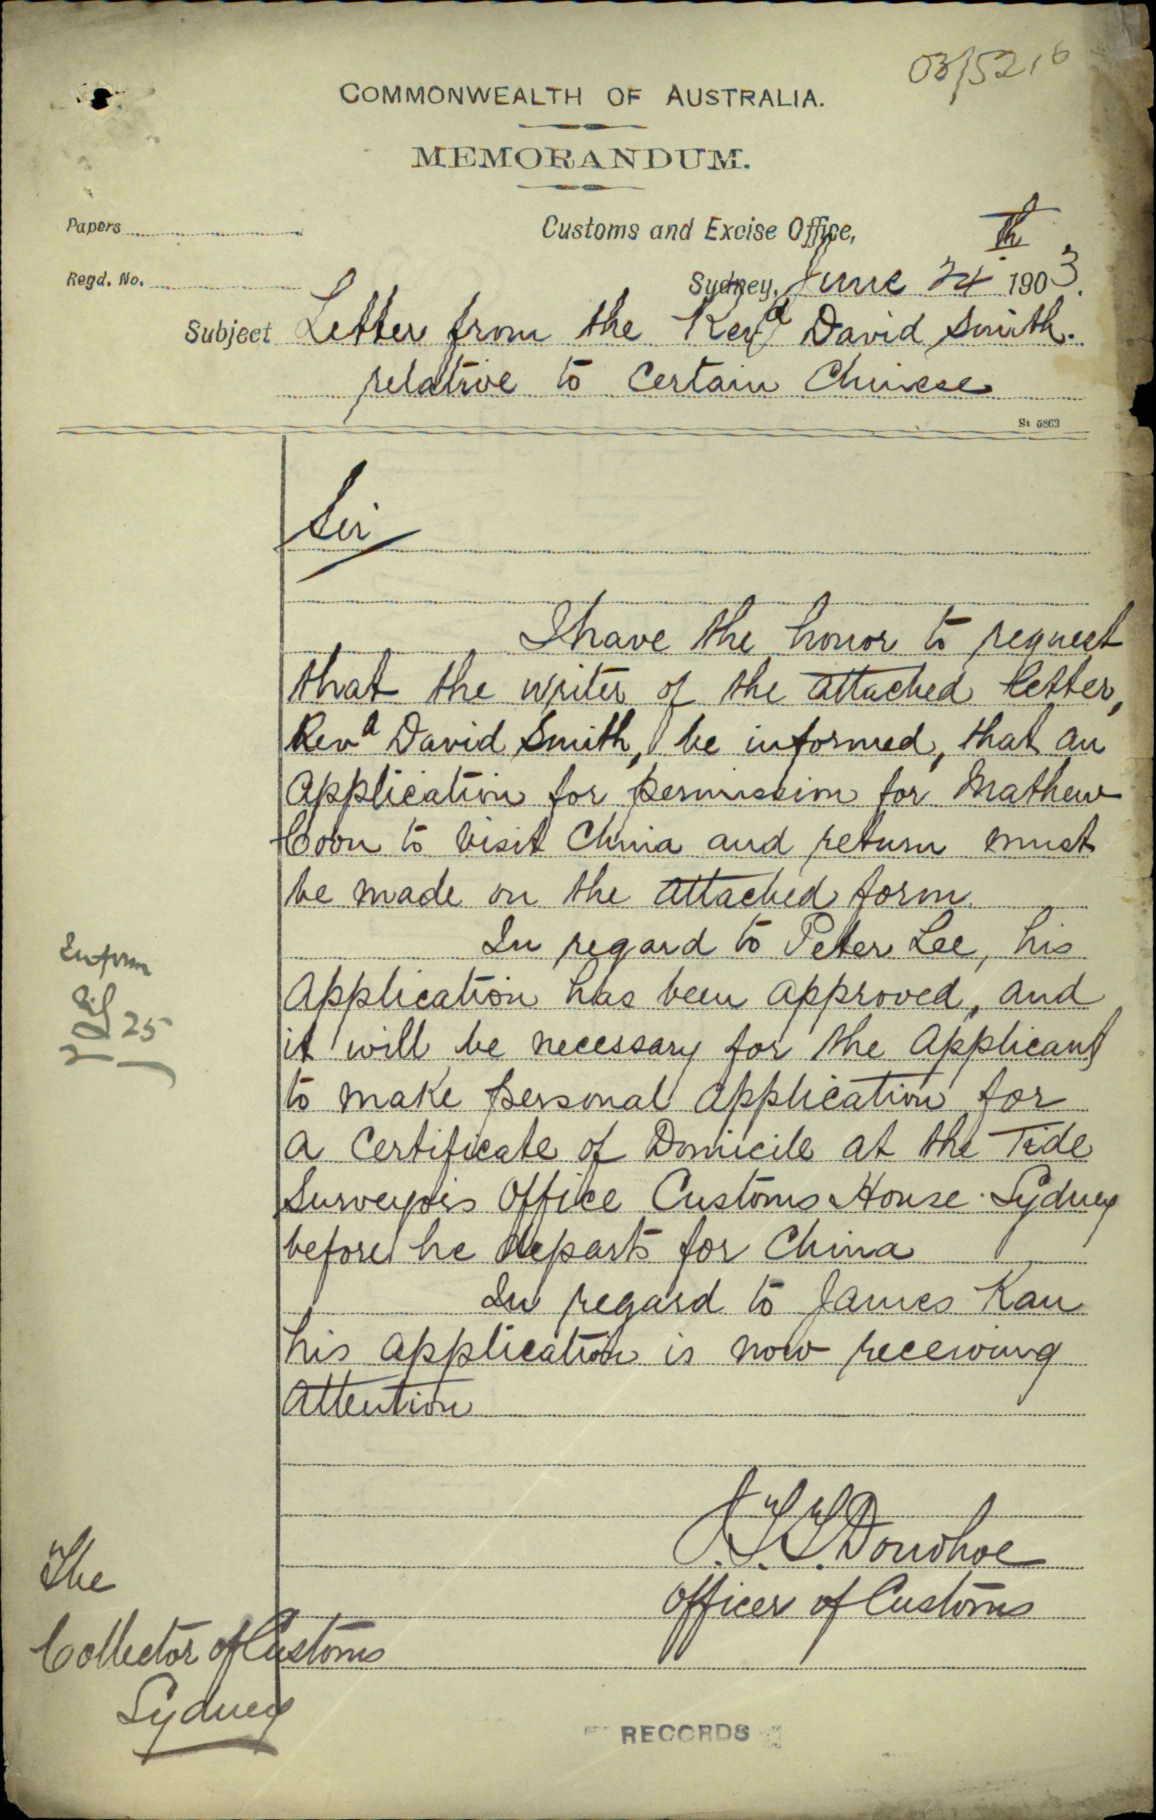 03/5216
COMMONWEALTH OF AUSTRALIA.
MEMORANDUM.
Papers
Customs and Excise Office,
Regd. No.
Sydney, June 24th 1903.
Subject Letter from the Revd David Smith.
relative to Certain Chinese
St 5863
Sir
I have the honor to request
that the writer of the attached letter,
Revd David Smith, be informed, that an
application for permission for Mathew
Coon to visit China and return must
be made on the attached form.
In regard to Peter Lee, his
Application has been approved, and
it will be necessary for the applicant
to make personal application for
a Certificate of Domicile at the Tide
Surveyors Office Customs House Sydney
before he departs for China
In regard to James Kau
his application is now receiving
attention
Inform
25
J.T.T. Donohoe
Officer of Customs
The
Collector of Customs
Sydney
RECORDS